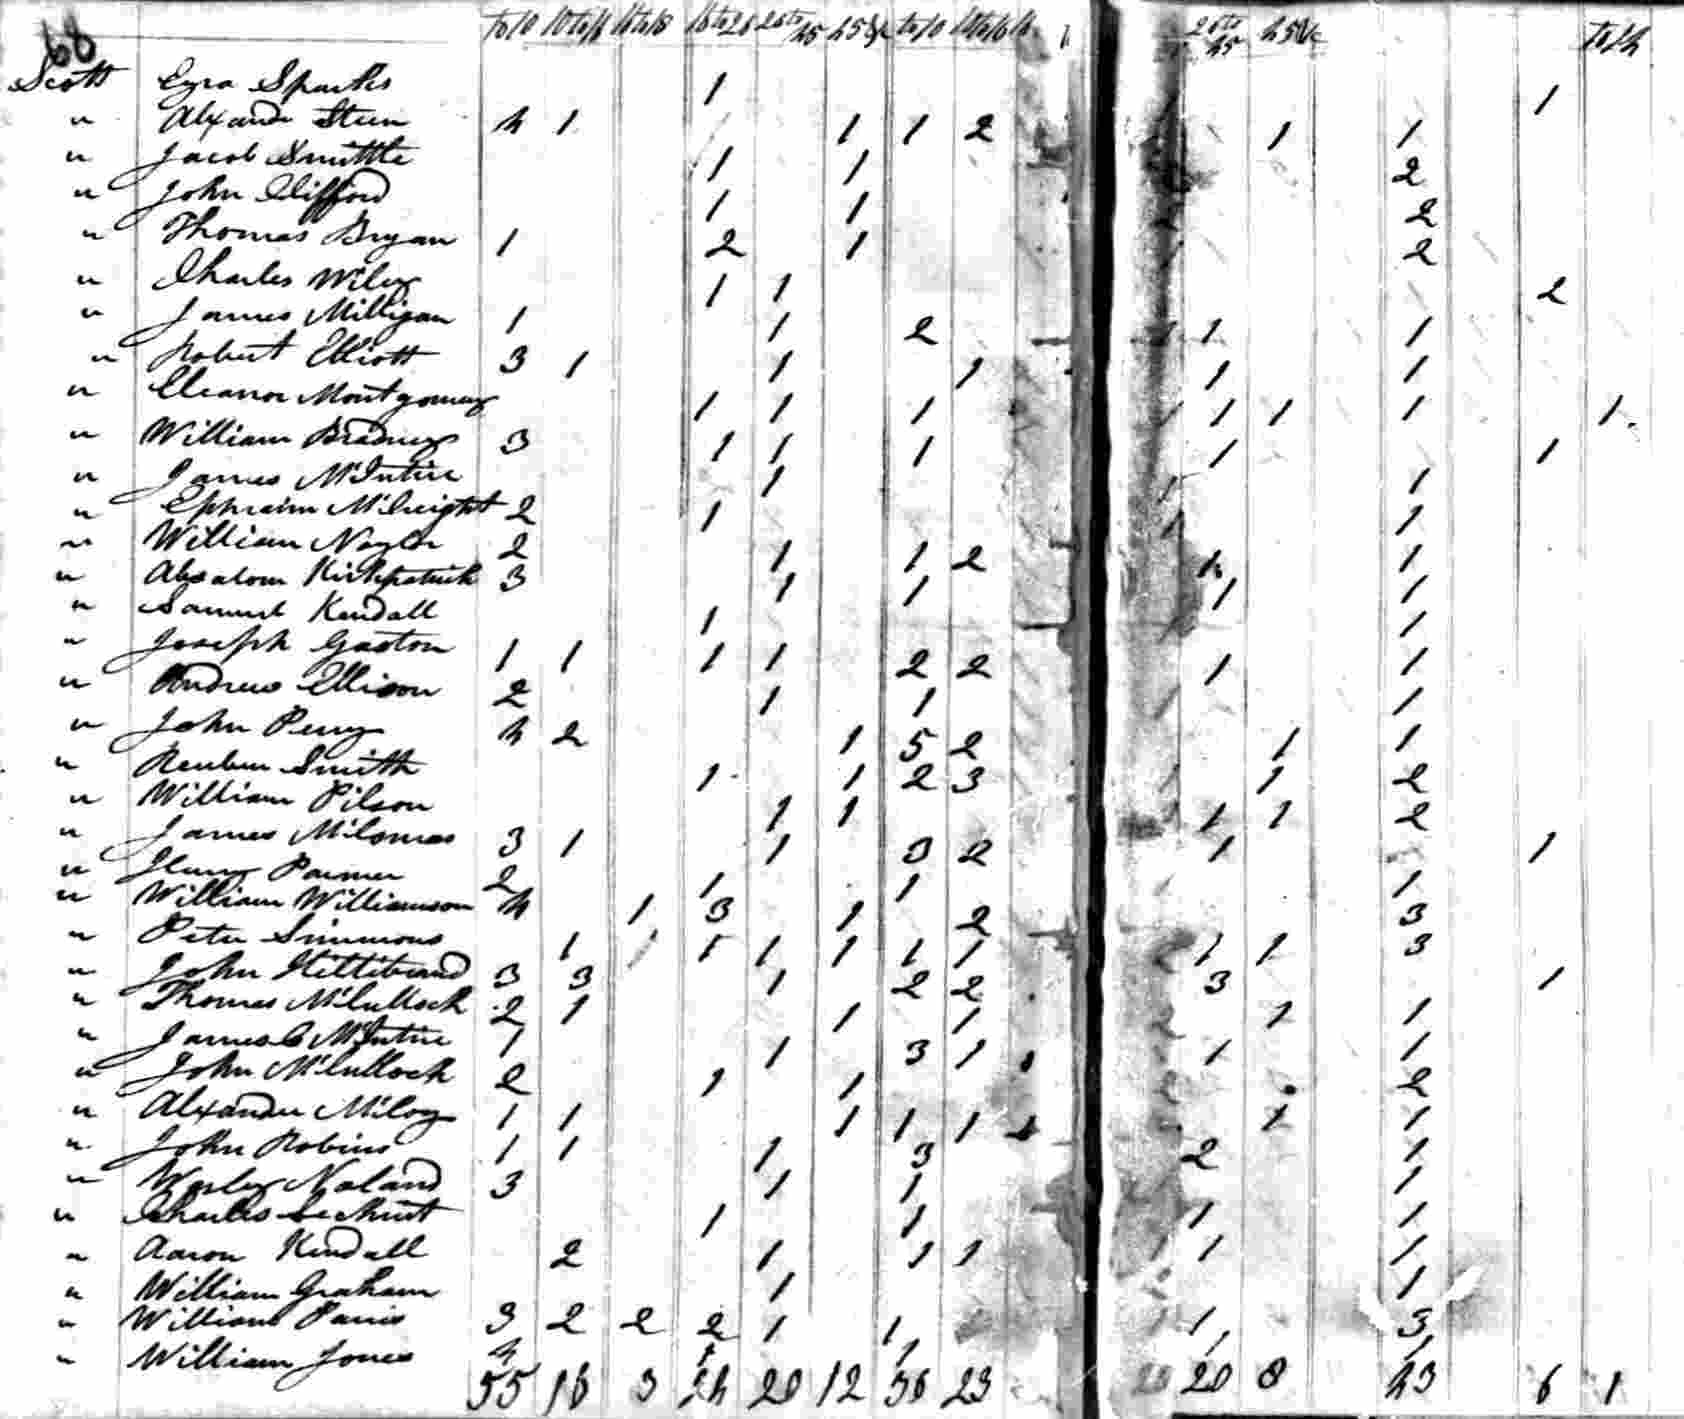 68
to 10 10 to 16 16 to 18 16 to 26 26 to 45 45 &c to 10 10 to 16 26 to 45 45 &c to 14
Scott Ezra Sparks 1 1
" Alexander Steen 4 1 1 1 2 1 1
" Jacob Smittle 1 1 2
" John Clifford 1 1 2
" Thomas Bryan 1 2 1 2
" Charles Wiley 1 1 2
" James Milligan 1 1 2 1 1
" Robert Elliott 3 1 1 1 1 1
" Eleanor Montgomery 1 1 1 1 1 1 1
" William Bradney 3 1 1 1 1 1
" James McIntire 1 1
" Ephraim McCreight 2 1 1 1
" William Naylor 2 1 1 2 1 1
" Absalom Kirkpatrick 3 1 1 1 1
" Samuel Kendall 1 1
" Joseph Gaston 1 1 1 1 2 2 1 1
" Andrew Ellison 2 1 1 1
" John Perry 4 2 1 5 2 1 1
" Reuben Smith 1 1 2 3 1 2
" William Pilson 1 1 1 1 2
" James McComas 3 1 1 3 2 1 1
" Henry Parmer 2 1 1 1
" William Williamson 4 1 3 1 2 3
" Peter Simmons 1 1 1 1 1 1 1 1 3
" John Hillibrand 3 3 1 2 2 3 1
" Thomas McCullock 2 1 1 1 1 1
" James C McIntire 1 1 3 1 1 1
" John McCullock 2 1 1 2
" Alexander McCoy 1 1 1 1 1 1 1 1
" John Robins 1 1 1 3 2 1
" Wesley Noland 3 1 1 1
" Charles 1 1 1 1
" Aaron Kendall 2 1 1 1 1 1
" William Graham 1 1
" William Paris 3 2 2 2 1 1 1 3
" William Jones 4 1 1 1 1
55 18 3 24 20 12 36 23 20 8 43 6 1